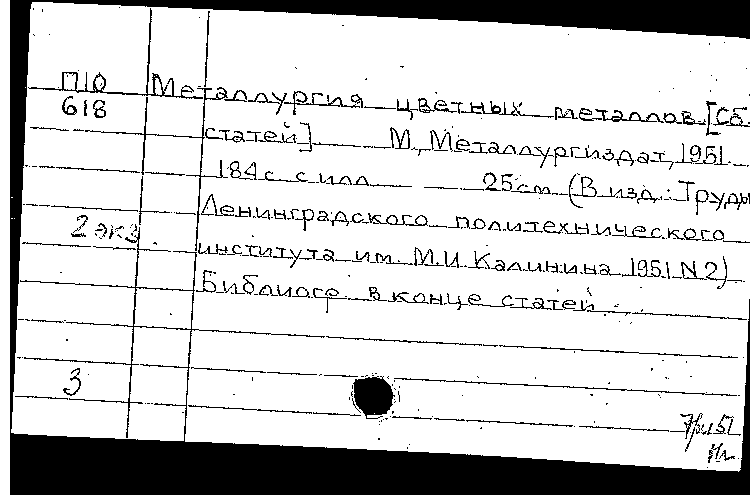 П10 Металлургия цветных металлов. [Сб.
618 статей]. М., Металлургиздат, 1951.
184 с. с илл. 25 см. (В изд.: Труды
Ленинградского политехнического
2 экз. института им. М.И. Калинина 1951 N2)
Библиогр. в конце статей.
3